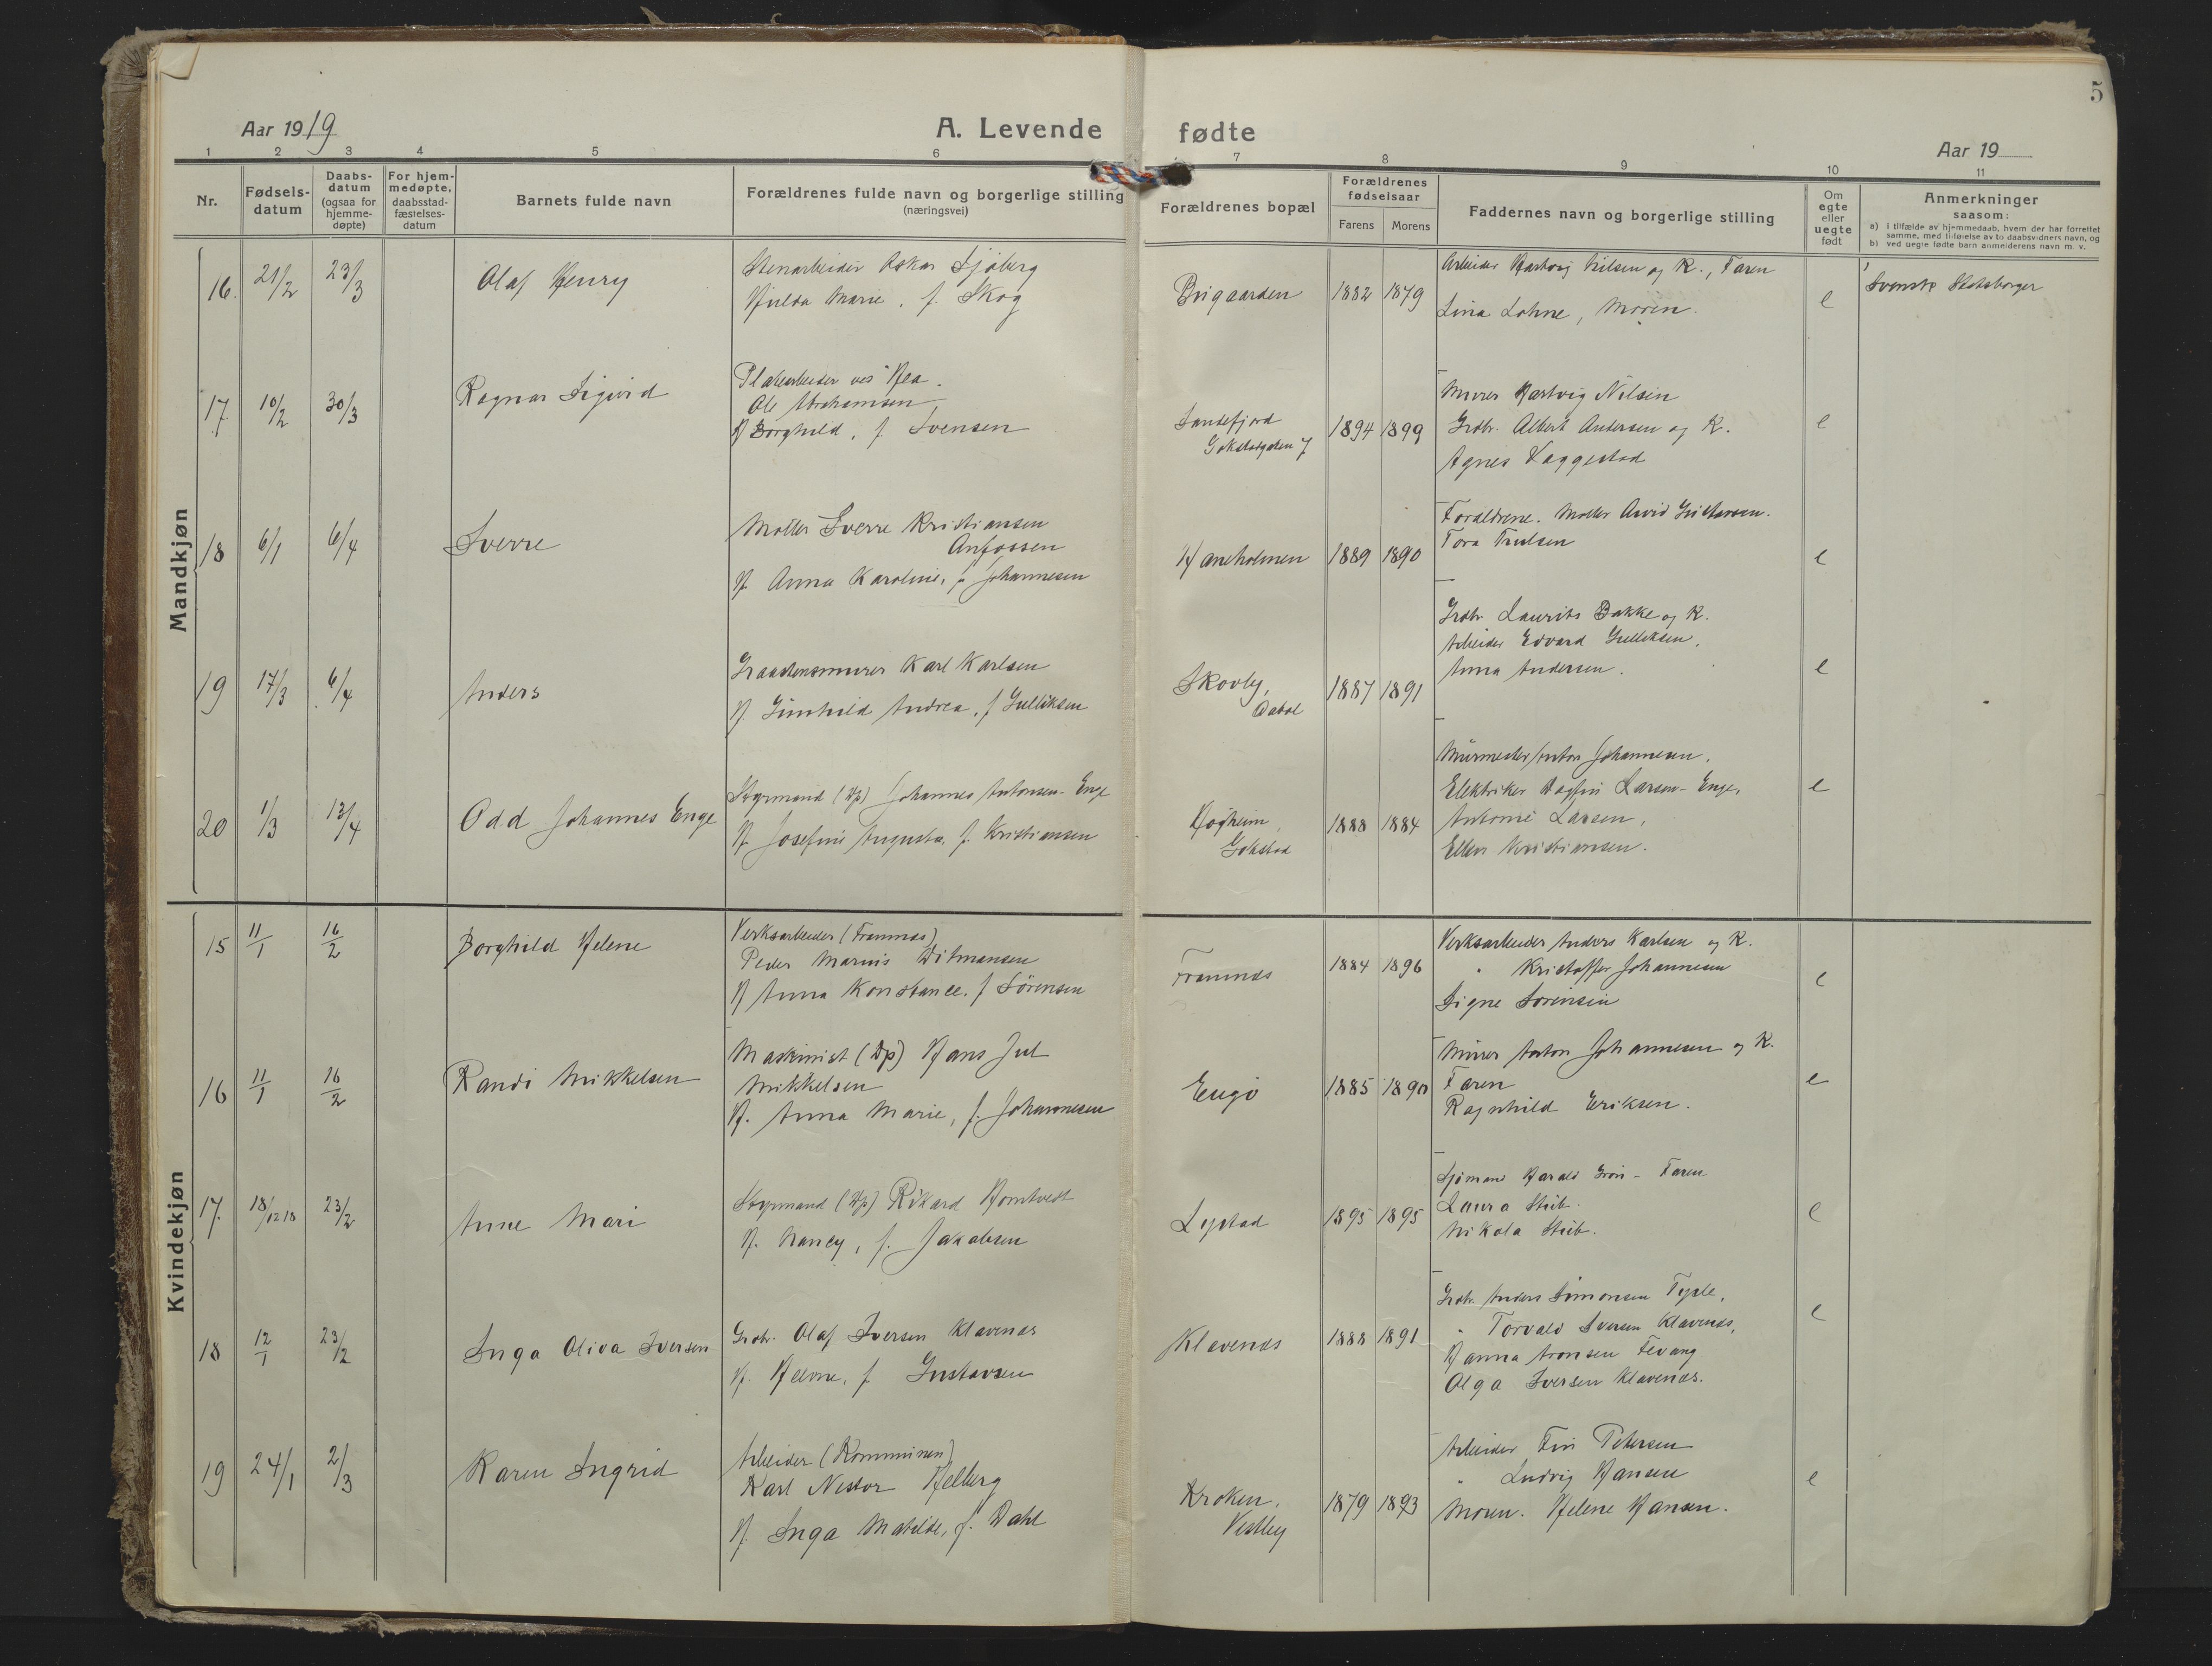 5
Aar 1919
A. Levende fødte
Aar 19
1 2 3 4 5 6 7 8 9 10 11
Nr.
Fødsels-
datum
Daabs-
datum
(ogsaa for
hjemme-
døpte)
For hjem-
medøpte,
daabsstad-
fæstelses-
datum
Barnets fulde navn
Forældrenes fulde navn og borgerlige stilling
(næringsvei)
Forældrenes bopæl
Forældrenes
fødselsaar
Farens Morens
Faddernes navn og borgerlige stilling
Om
egte
eller
uegte
født
Anmerkninger
saasom:
a) i tilfælde av hjemmedaab, hvem der har forrettet
samme, med tilføielse av to daabsvidners navn, og
b) ved uegte fødte barn anmelderens navn m. v.
Mandkjøn
16. 21/2 23/3
Olaf Henry
Stenarbeider Oskar Sjöberg
Hulda Marie, f. Skog
Bugaarden
1882 1879
Arbeider Hartvig Nilsen og K., Faren
Lina Lohne, Moren.
e
Svensk Statsborger
17 10/2 30/3
Ragnar Sigurd
Ole Abrahamsen
H Borghild, f. Svensen
Sandefjord
Gokstadgaten 7
1894 1899
Murer Hartvig Nilsen
Grdbr. Albert Andersen og K.
Agnes Haggestad
e
18 6/1 6/4
Sverre
Matros Sverre Kristiansen
Anfossen
H. Anna Karoline, f. Johannesen
Haneholmen
1889 1890
Forældrene. Matros Arvid Gustavsen.
Tora Trulsen
e
19 17/3 6/4
Anders
Graastensmurer Karl Karlsen
H. Gunhild Andrea, f Gulliksen
Skovly,
1887 1891
Grdbr. Laurits Bakke og K.
Arbeider Edvard Gulliksen,
Anna Andersen.
e
20 1/3 13/4
Odd Johannes Enge
Styrmand (Dp) Johannes Antonsen-Enge
H. Josefine Augusta, f. Kristiansen
Høgheim,
Gokstad
1888 1884
Murmester Anton Johannesen,
Elektriker Dagfin Larsen-Enge,
Antonie Larsen,
Ellen Kristiansen.
e
Kvindekjøn
15 11/1 16/2
Borghild Helene
Verksarbeider (Framnæs)
Peder Marius Ditmansen
H Anna Konstance, f Sörensen
Framnæs
1884 1896
Verksarbeider Anders Karlsen og K.
" Kristoffer Johannesen
Signe Sörensen
e
16 11/1 16/2
Randi Mikkelsen
Maskinist (Dp) Hans Jul
Mikkelsen
H. Anna Marie, f. Johannesen
Engø
1885 1890
Murer Anton Johannesen og K.
Faren
Ragnhild Eriksen.
e
17. 18/12 18 23/2
Anne Mari
Styrmand (Dp) Rikard Homtvedt
H. Nancy, f. Jakobsen
Lystad
1895 1895
Sjömand Harald Grön - Faren
Laura Stub.
Nikola Stub.
e
18 12/1 23/2
Inga Oliva Iversen
Grdbr. Olaf Iversen Klavenæs
H. Helene, f Gustavsen
Klavenæs
1888 1891
Grdbr. Anders Simonsen
" Torvald Iversen Klavenæs,
Hanna Aronsen Fevang
Olga Iversen Klavenæs.
e
19 24/1 2/3
Karen Ingrid
Arbeider (Kommunen)
Karl Nestor Helberg
H. Inga Matilde, f. Dahl
Kroken,
Vestby
1879 1893
Arbeider Finn Petersen
" Ludvig Hansen
Moren. Helene Hansen.
e